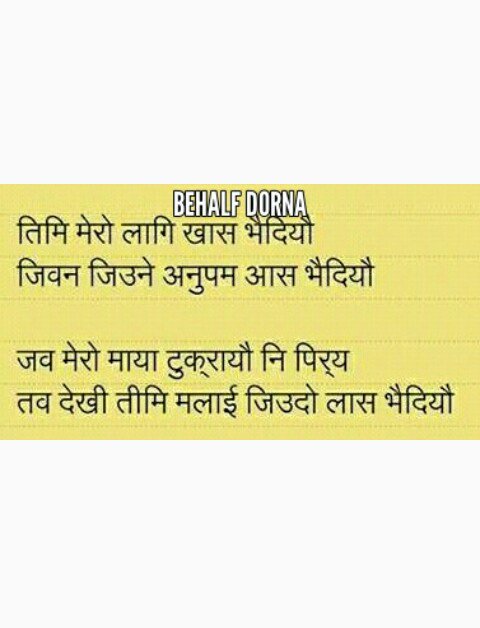 BEHALF DORNA
तिमि मेरो लागि खास भैदियौ
जिवन जिउने अनुपम आस भैदियौ
जव मेरो माया टुक्रायौ नि पिर्‍य
तव देखी तीमि मलाई जिउदो लास भैदियौ